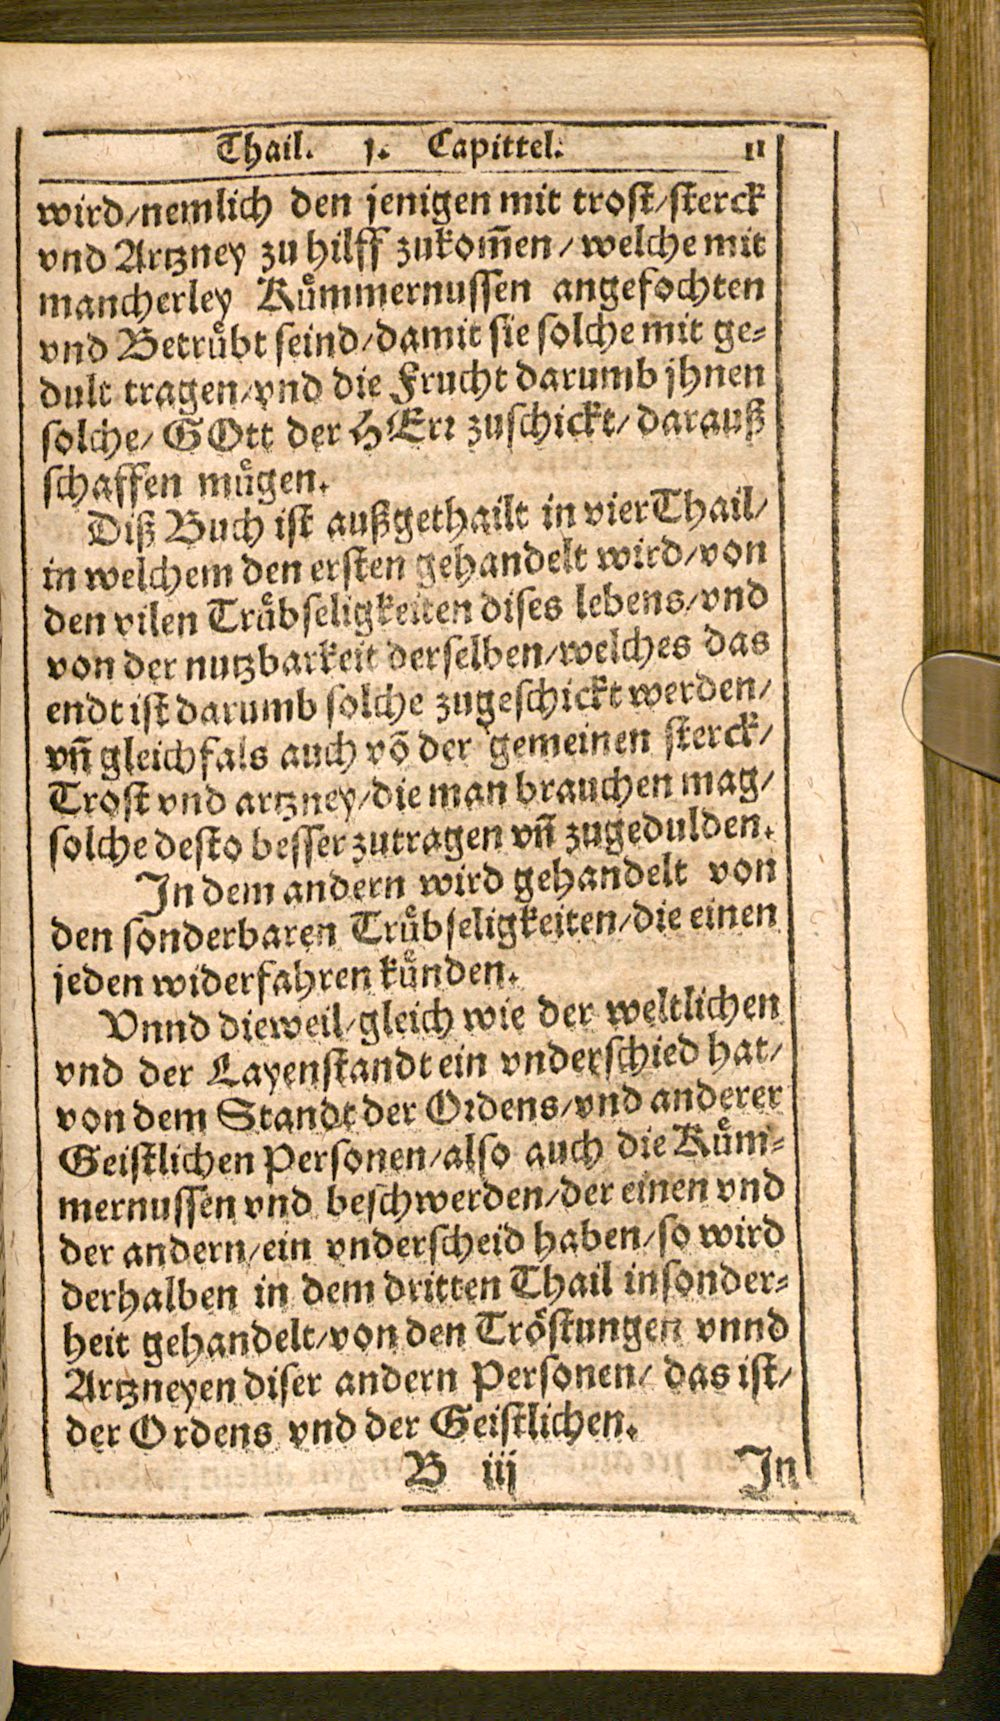 Thail. 1. Capittel. 11
wird/nemlich den jenigen mit trost/sterck
vnd Artzney zu hilff zukom̃en/welche mit
mancherley Kuͤmmernussen angefochten
vnd Betruͤbt seind/damit sie solche mit ge-
dult tragen/vnd die Frucht darumb jhnen
solche/ GOtt der HErr zuschickt/ darauß
schaffen muͤgen.
Diß Buch ist außgethailt in vier Thail/
in welchem den ersten gehandelt wird/von
den vilen Truͤbseligkeiten dises lebens/vnd
von der nutzbarkeit derselben/welches das
endt ist darumb solche zugeschickt werden/
vñ gleichfals auch võ der gemeinen sterck/
Trost vnd artzney/die man brauchen mag/
solche desto besser zutragen vñ zugedulden.
In dem andern wird gehandelt von
den sonderbaren Truͤbseligkeiten/die einen
jeden widerfahren kuͤnden.
Vnnd dieweil/gleich wie der weltlichen
vnd der Layenstandt ein vnderschied hat/
von dem Standt der Ordens/vnd anderer
Geistlichen Personen/also auch die Kuͤm-
mernussen vnd beschwerden/der einen vnd
der andern/ein vnderscheid haben/so wird
derhalben in dem dritten Thail insonder-
heit gehandelt/von den Troͤstungen vnnd
Artzneyen diser andern Personen/ das ist/
der Ordens vnd der Geistlichen.
B iij In